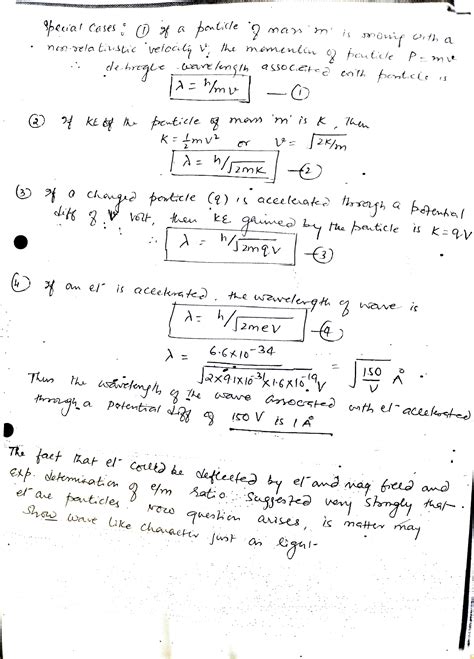 Special Cases: ① If a particle of mass 'm' is moving with a
non-relativistic velocity V, the momentum of particle P = mv
∴ de-broglie wavelength associated with particle is
λ = h/mv — ①
② If KE of the particle of mass 'm' is K, then
K = ½mv² or V = √2K/m
λ = h/√2mK — ②
③ If a charged particle (q) is accelerated through a potential
diff of V volt, then KE gained by the particle is K = qV
∴ λ = h/√2mqV — ③
④ If an el⁻ is accelerated, the wavelength of wave is
λ = h/√2meV — ④
λ = 6.6×10⁻³⁴ / √2×9.1×10⁻³¹×1.6×10⁻¹⁹V = √150/V Å
Thus the wavelength of the wave associated with el⁻ accelerated
through a potential diff of 150 V is 1 Å
The fact that el⁻ could be deflected by el⁻ and mag field and
exp. determination of e/m ratio suggested very strongly that
el⁻ are particles. Now question arises, is matter may
show wave like character just as light-